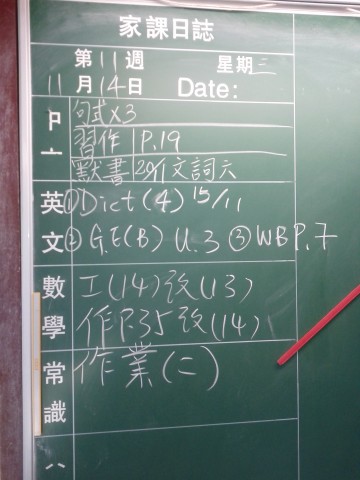 家課日誌
第11週 星期三
11月14日 Date:
中
句式x3
習作 P.19
默書 20/11文詞六
英文
①Dict(4) 15/11
②G.E(B) U.3 ③WB P.7
數學
工(14)改(13)
作P.35改(14)
常識
作業(二)